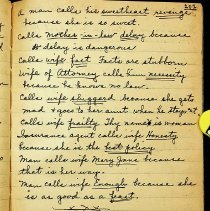 A man calls his sweetheart revenge
because she is so sweet.
Calls Mother-in-law delay because
delay is dangerous
Calls wife fact. Facts are stubborn
Wife of Attorney calls him necessity
because he knows no law.
Calls wife sluggard because she gets
mad & goes to her aunt when he
Calls wife frailty Thy name is woman
Insurance agent calls wife Honesty
because she is the best policy
Man calls wife Mary Jane because
that is her way.
Man calls wife Enough because she
is as good as a feast.